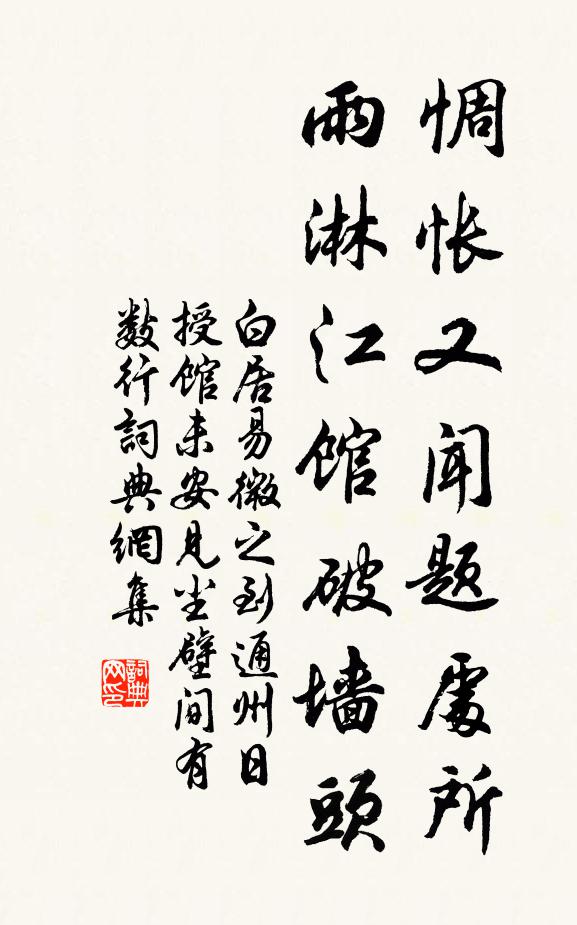 惆怅又闻题處所
雨淋江馆破墙頭
白居易微之到通州日
授馆未安見尘壁间有
数行詞典網集
詞典网印